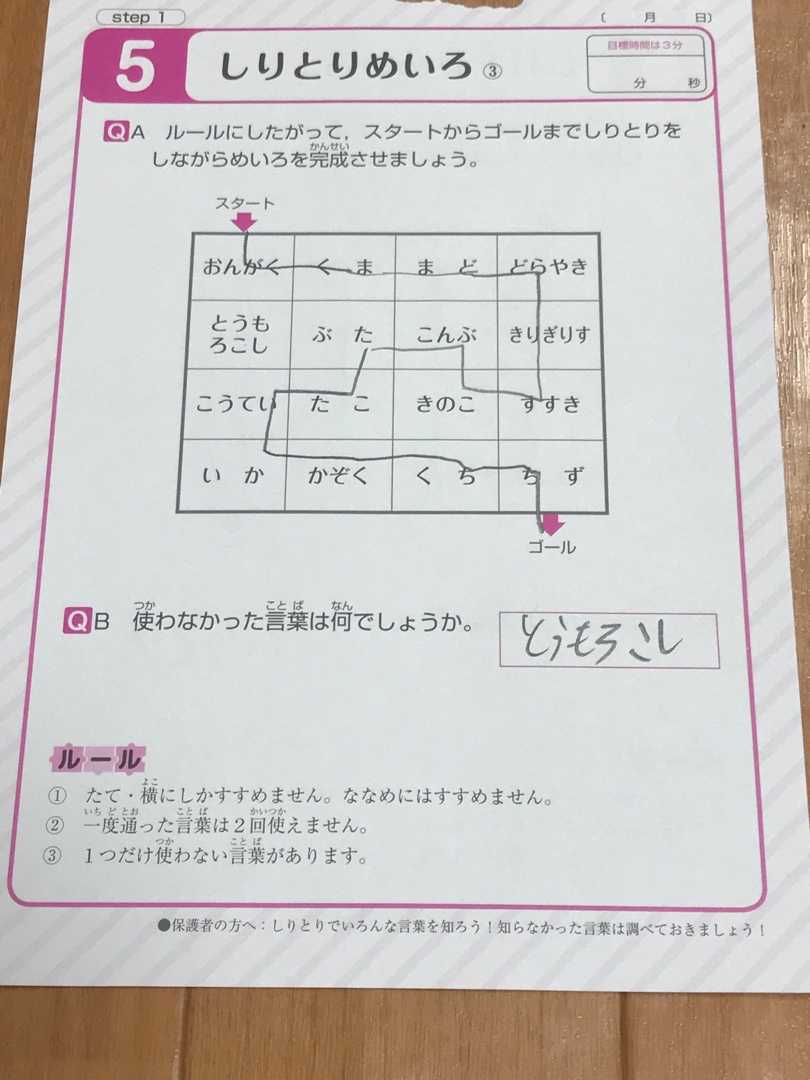 step 1
( 月 日)
5 しりとりめいろ ③
目標時間は3分
分 秒
QA ルールにしたがって，スタートからゴールまでしりとりを
しながらめいろを完成させましょう。
かんせい
スタート
おんがく くま まど どらやき
とうもろこし ぶた こんぶ きりぎりす
こうてい たこ きのこ すすき
いか かぞく くち ちず
ゴール
QB 使わなかった言葉は何でしょうか。
つか ことば なん
とうもろこし
ルール
① たて・横にしかすすめません。ななめにはすすめません。
よこ
② 一度通った言葉は2回使えません。
いちどとお ことば かいつか
③ 1つだけ使わない言葉があります。
つか ことば
●保護者の方へ：しりとりでいろんな言葉を知ろう！知らなかった言葉は調べておきましょう！